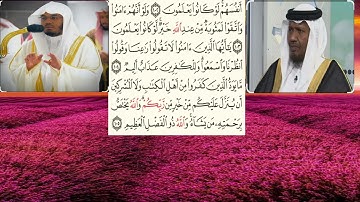 أَنفُسَهُمْ لَوْ كَانُوا۟ يَعْلَمُونَ ١٠٢ وَلَوْ أَنَّهُمْ ءَامَنُوا۟
وَٱتَّقَوْا۟ لَمَثُوبَةٌ مِّنْ عِندِ ٱللَّهِ خَيْرٌ لَّوْ كَانُوا۟ يَعْلَمُونَ
١٠٣ يَـٰٓأَيُّهَا ٱلَّذِينَ ءَامَنُوا۟ لَا تَقُولُوا۟ رَٰعِنَا وَقُولُوا۟
ٱنظُرْنَا وَٱسْمَعُوا۟ وَلِلْكَـٰفِرِينَ عَذَابٌ أَلِيمٌ ١٠٤
مَّا يَوَدُّ ٱلَّذِينَ كَفَرُوا۟ مِنْ أَهْلِ ٱلْكِتَـٰبِ وَلَا ٱلْمُشْرِكِينَ
أَن يُنَزَّلَ عَلَيْكُم مِّنْ خَيْرٍ مِّن رَّبِّكُمْ وَٱللَّهُ يَخْتَصُّ
بِرَحْمَتِهِۦ مَن يَشَآءُ وَٱللَّهُ ذُو ٱلْفَضْلِ ٱلْعَظِيمِ ١٠٥